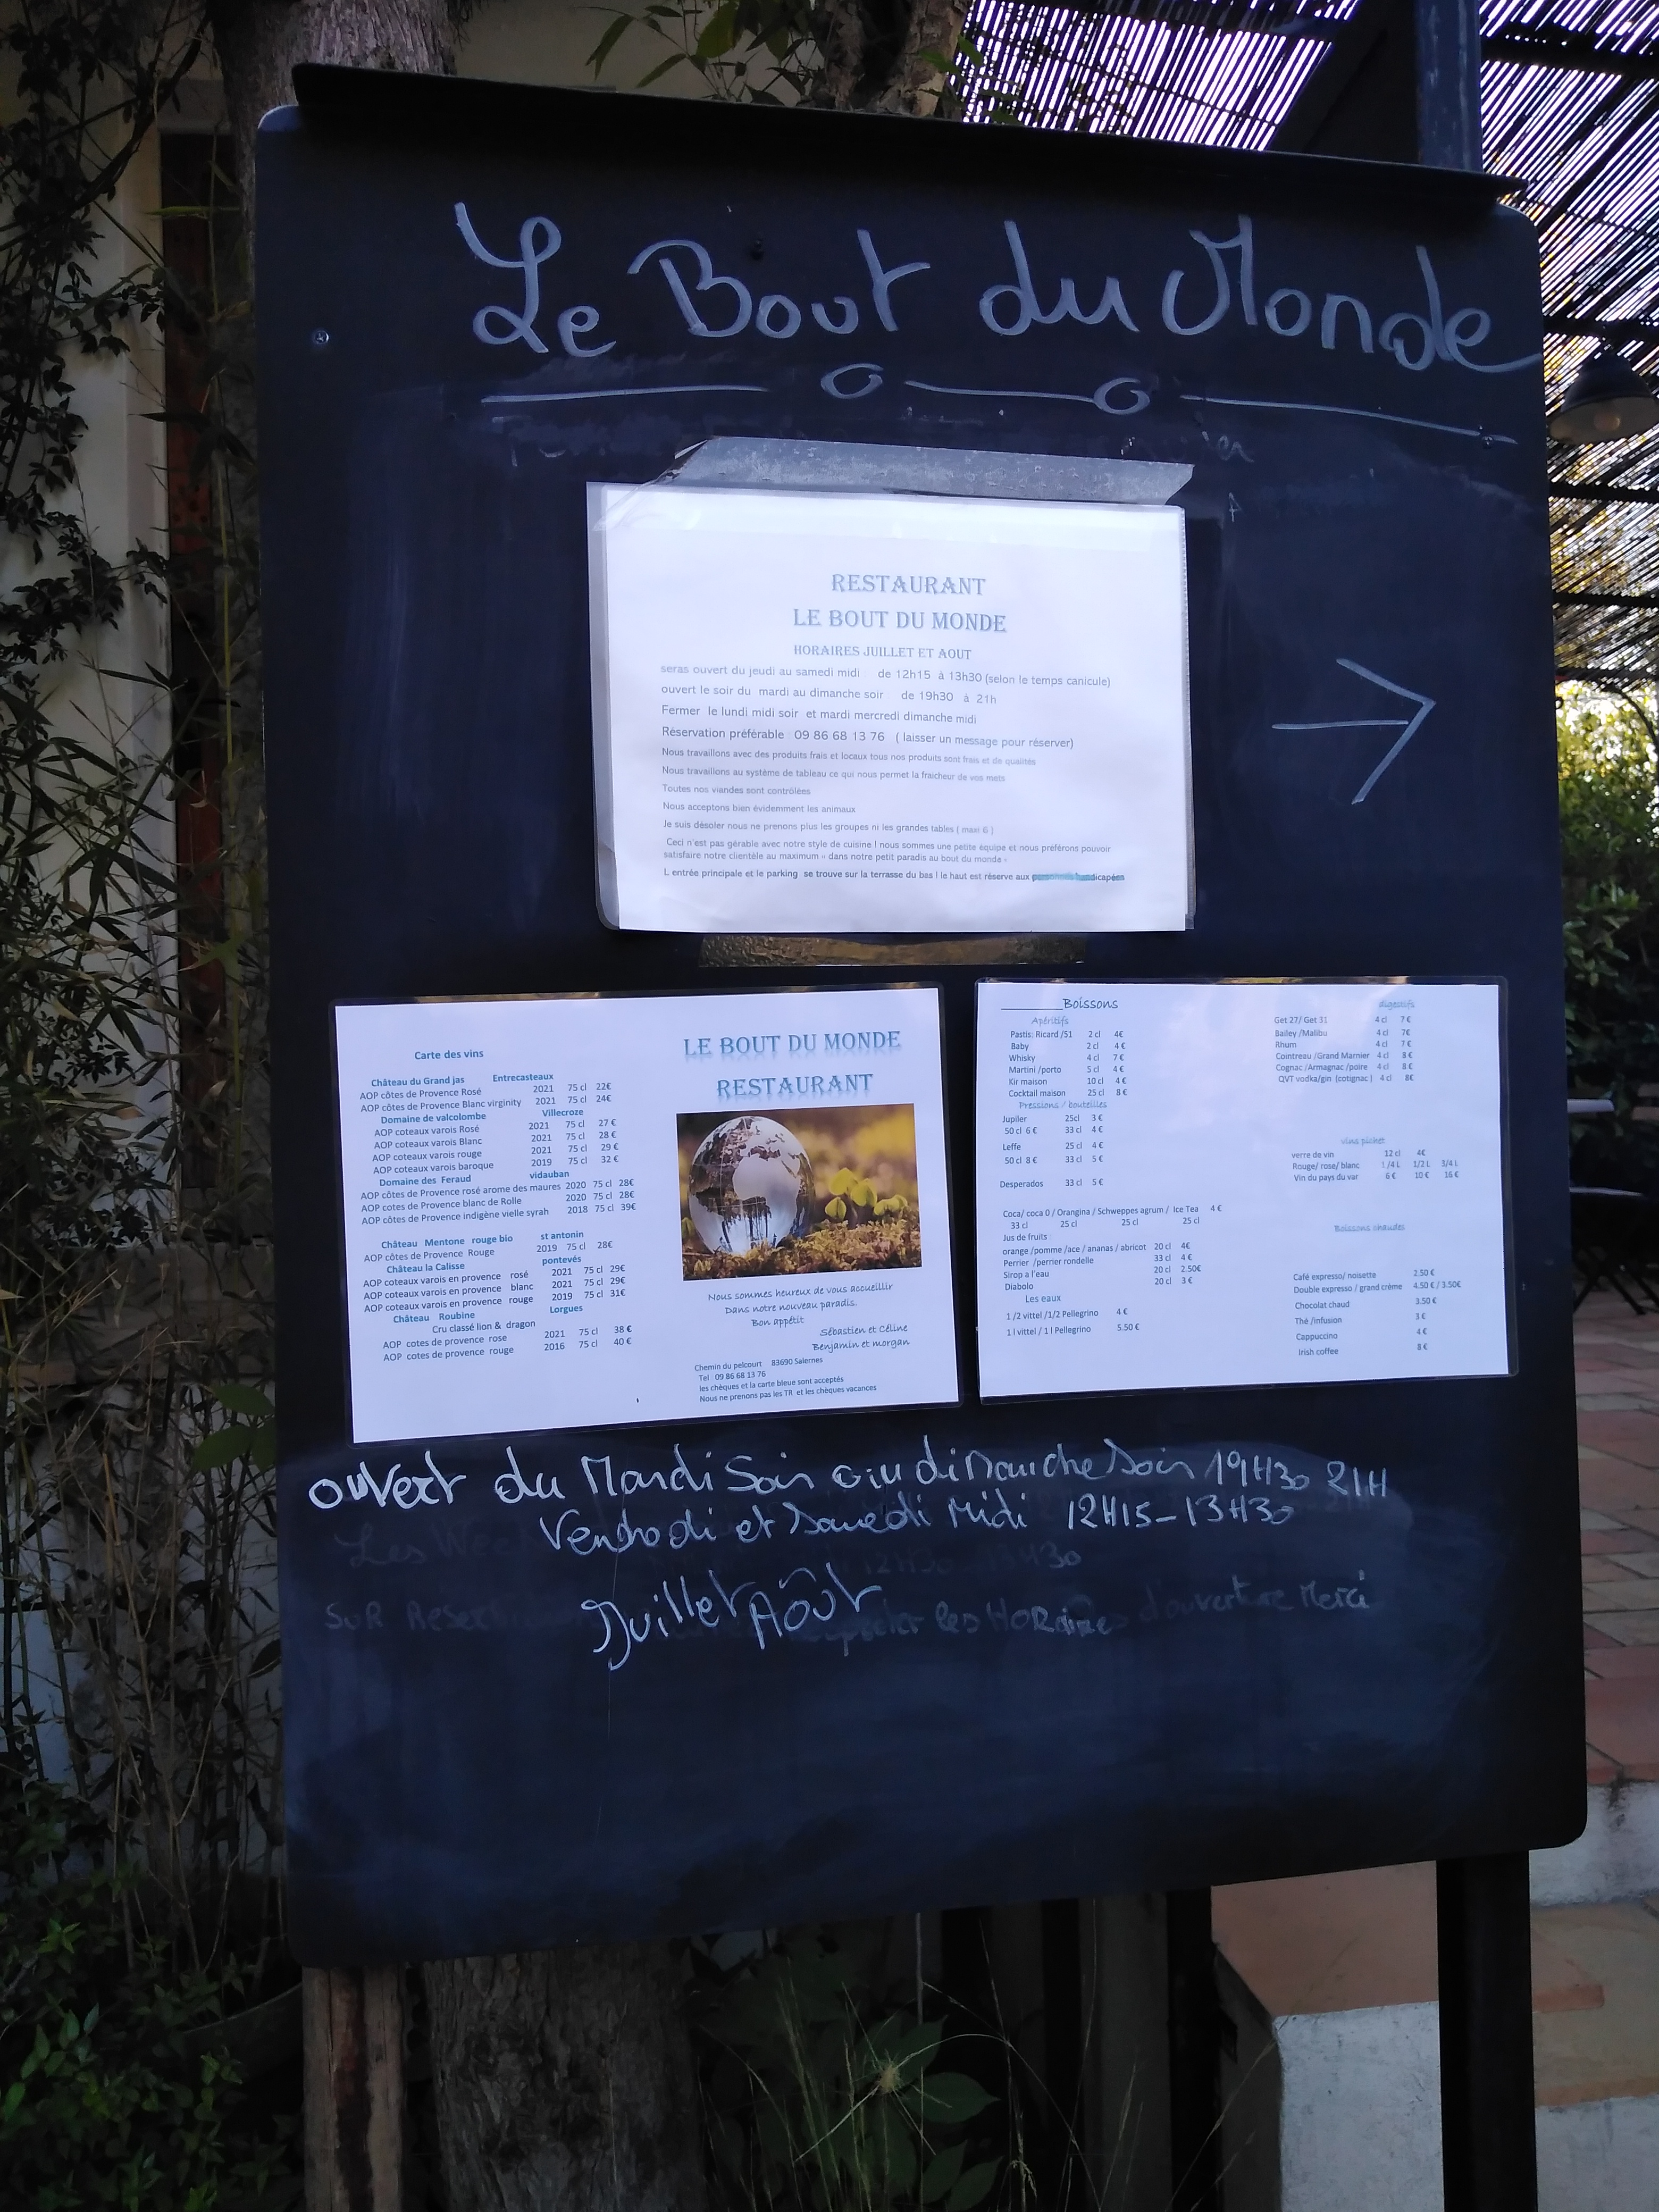 Le Bout du Monde
RESTAURANT
LE BOUT DU MONDE
HORAIRES JUILLET ET AOUT
seras ouvert du jeudi au samedi midi de 12h15 à 13h30 (selon le temps canicule)
ouvert le soir du mardi au dimanche soir de 19h30 à 21h
Fermer le lundi midi soir et mardi mercredi dimanche midi
Réservation préférable 09 86 68 13 76 ( laisser un message pour réserver)
Nous travaillons avec des produits frais et locaux tous nos produits sont frais et de qualités
Nous travaillons au système de tableau ce qui nous permet la fraicheur de vos mets
Toutes nos viandes sont contrôlées
Nous acceptons bien évidemment les animaux
Je suis désoler nous ne prenons plus les groupes ni les grandes tables ( maxi 6 )
Ceci n'est pas gérable avec notre style de cuisine ! nous sommes une petite équipe et nous préférons pouvoir
satisfaire notre clientèle au maximum « dans notre petit paradis au bout du monde »
L entrée principale et le parking se trouve sur la terrasse du bas ! le haut est réserve aux personnes handicapées
Carte des vins
Château du Grand jas Entrecasteaux
AOP côtes de Provence Rosé 2021 75 cl 22€
AOP côtes de Provence Blanc virginity 2021 75 cl 24€
Domaine de valcolombe Villecroze
AOP coteaux varois Rosé 2021 75 cl 27 €
AOP coteaux varois Blanc 2021 75 cl 28 €
AOP coteaux varois rouge 2021 75 cl 29 €
AOP coteaux varois baroque 2019 75 cl 32 €
Domaine des Feraud vidauban
AOP côtes de Provence rosé arome des maures 2020 75 cl 28€
AOP côtes de Provence blanc de Rolle 2020 75 cl 28€
AOP côtes de Provence indigène vielle syrah 2018 75 cl 39€
Château Mentone rouge bio st antonin
AOP côtes de Provence Rouge 2019 75 cl 28€
Château la Calisse pontevés
AOP coteaux varois en provence rosé 2021 75 cl 29€
AOP coteaux varois en provence blanc 2021 75 cl 29€
AOP coteaux varois en provence rouge 2019 75 cl 31€
Château Roubine Lorgues
Cru classé lion & dragon
AOP cotes de provence rose 2021 75 cl 38 €
AOP cotes de provence rouge 2016 75 cl 40 €
LE BOUT DU MONDE
RESTAURANT
Nous sommes heureux de vous accueillir
Dans notre nouveau paradis.
Bon appétit
Sébastien et Céline
Benjamin et morgan
Chemin du pelcourt 83690 Salernes
Tel 09 86 68 13 76
les chèques et la carte bleue sont acceptés
Nous ne prenons pas les TR et les chèques vacances
Boissons
Apéritifs
Pastis: Ricard /51 2 cl 4€
Baby 2 cl 4 €
Whisky 4 cl 7 €
Martini /porto 5 cl 4 €
Kir maison 10 cl 4 €
Cocktail maison 25 cl 8 €
Pressions / bouteilles
Jupiler 25cl 3 €
50 cl 6 € 33 cl 4 €
Leffe 25 cl 4 €
50 cl 8 € 33 cl 5 €
Desperados 33 cl 5 €
Coca/ coca 0 / Orangina / Schweppes agrum / Ice Tea 4 €
33 cl 25 cl 25 cl 25 cl
Jus de fruits
orange /pomme /ace / ananas / abricot 20 cl 4€
Perrier /perrier rondelle 33 cl 4 €
Sirop a l'eau 20 cl 2.50€
Diabolo 20 cl 3 €
Les eaux
1 /2 vittel /1/2 Pellegrino 4 €
1 l vittel / 1 l Pellegrino 5.50 €
digestifs
Get 27/ Get 31 4 cl 7 €
Bailey /Malibu 4 cl 7€
Rhum 4 cl 7 €
Cointreau /Grand Marnier 4 cl 8 €
Cognac /Armagnac /poire 4 cl 8 €
QVT vodka/gin (cotignac ) 4 cl 8€
vins pichet
verre de vin 12 cl 4€
Rouge/ rose/ blanc 1 /4 L 1/2 L 3/4 L
Vin du pays du var 6 € 10 € 16 €
Boissons chaudes
Café expresso/ noisette 2.50 €
Double expresso / grand crème 4.50 € / 3.50€
Chocolat chaud 3.50 €
Thé /infusion 3 €
Cappuccino 4 €
Irish coffee 8 €
ouvert du Mardi Soir au dimanche Soir 19H30 21H
Vendredi et Samedi Midi 12H15-13H30
Les 12H30 13H30
Juillet Août
SuR les Horaires d'ouverture Merci